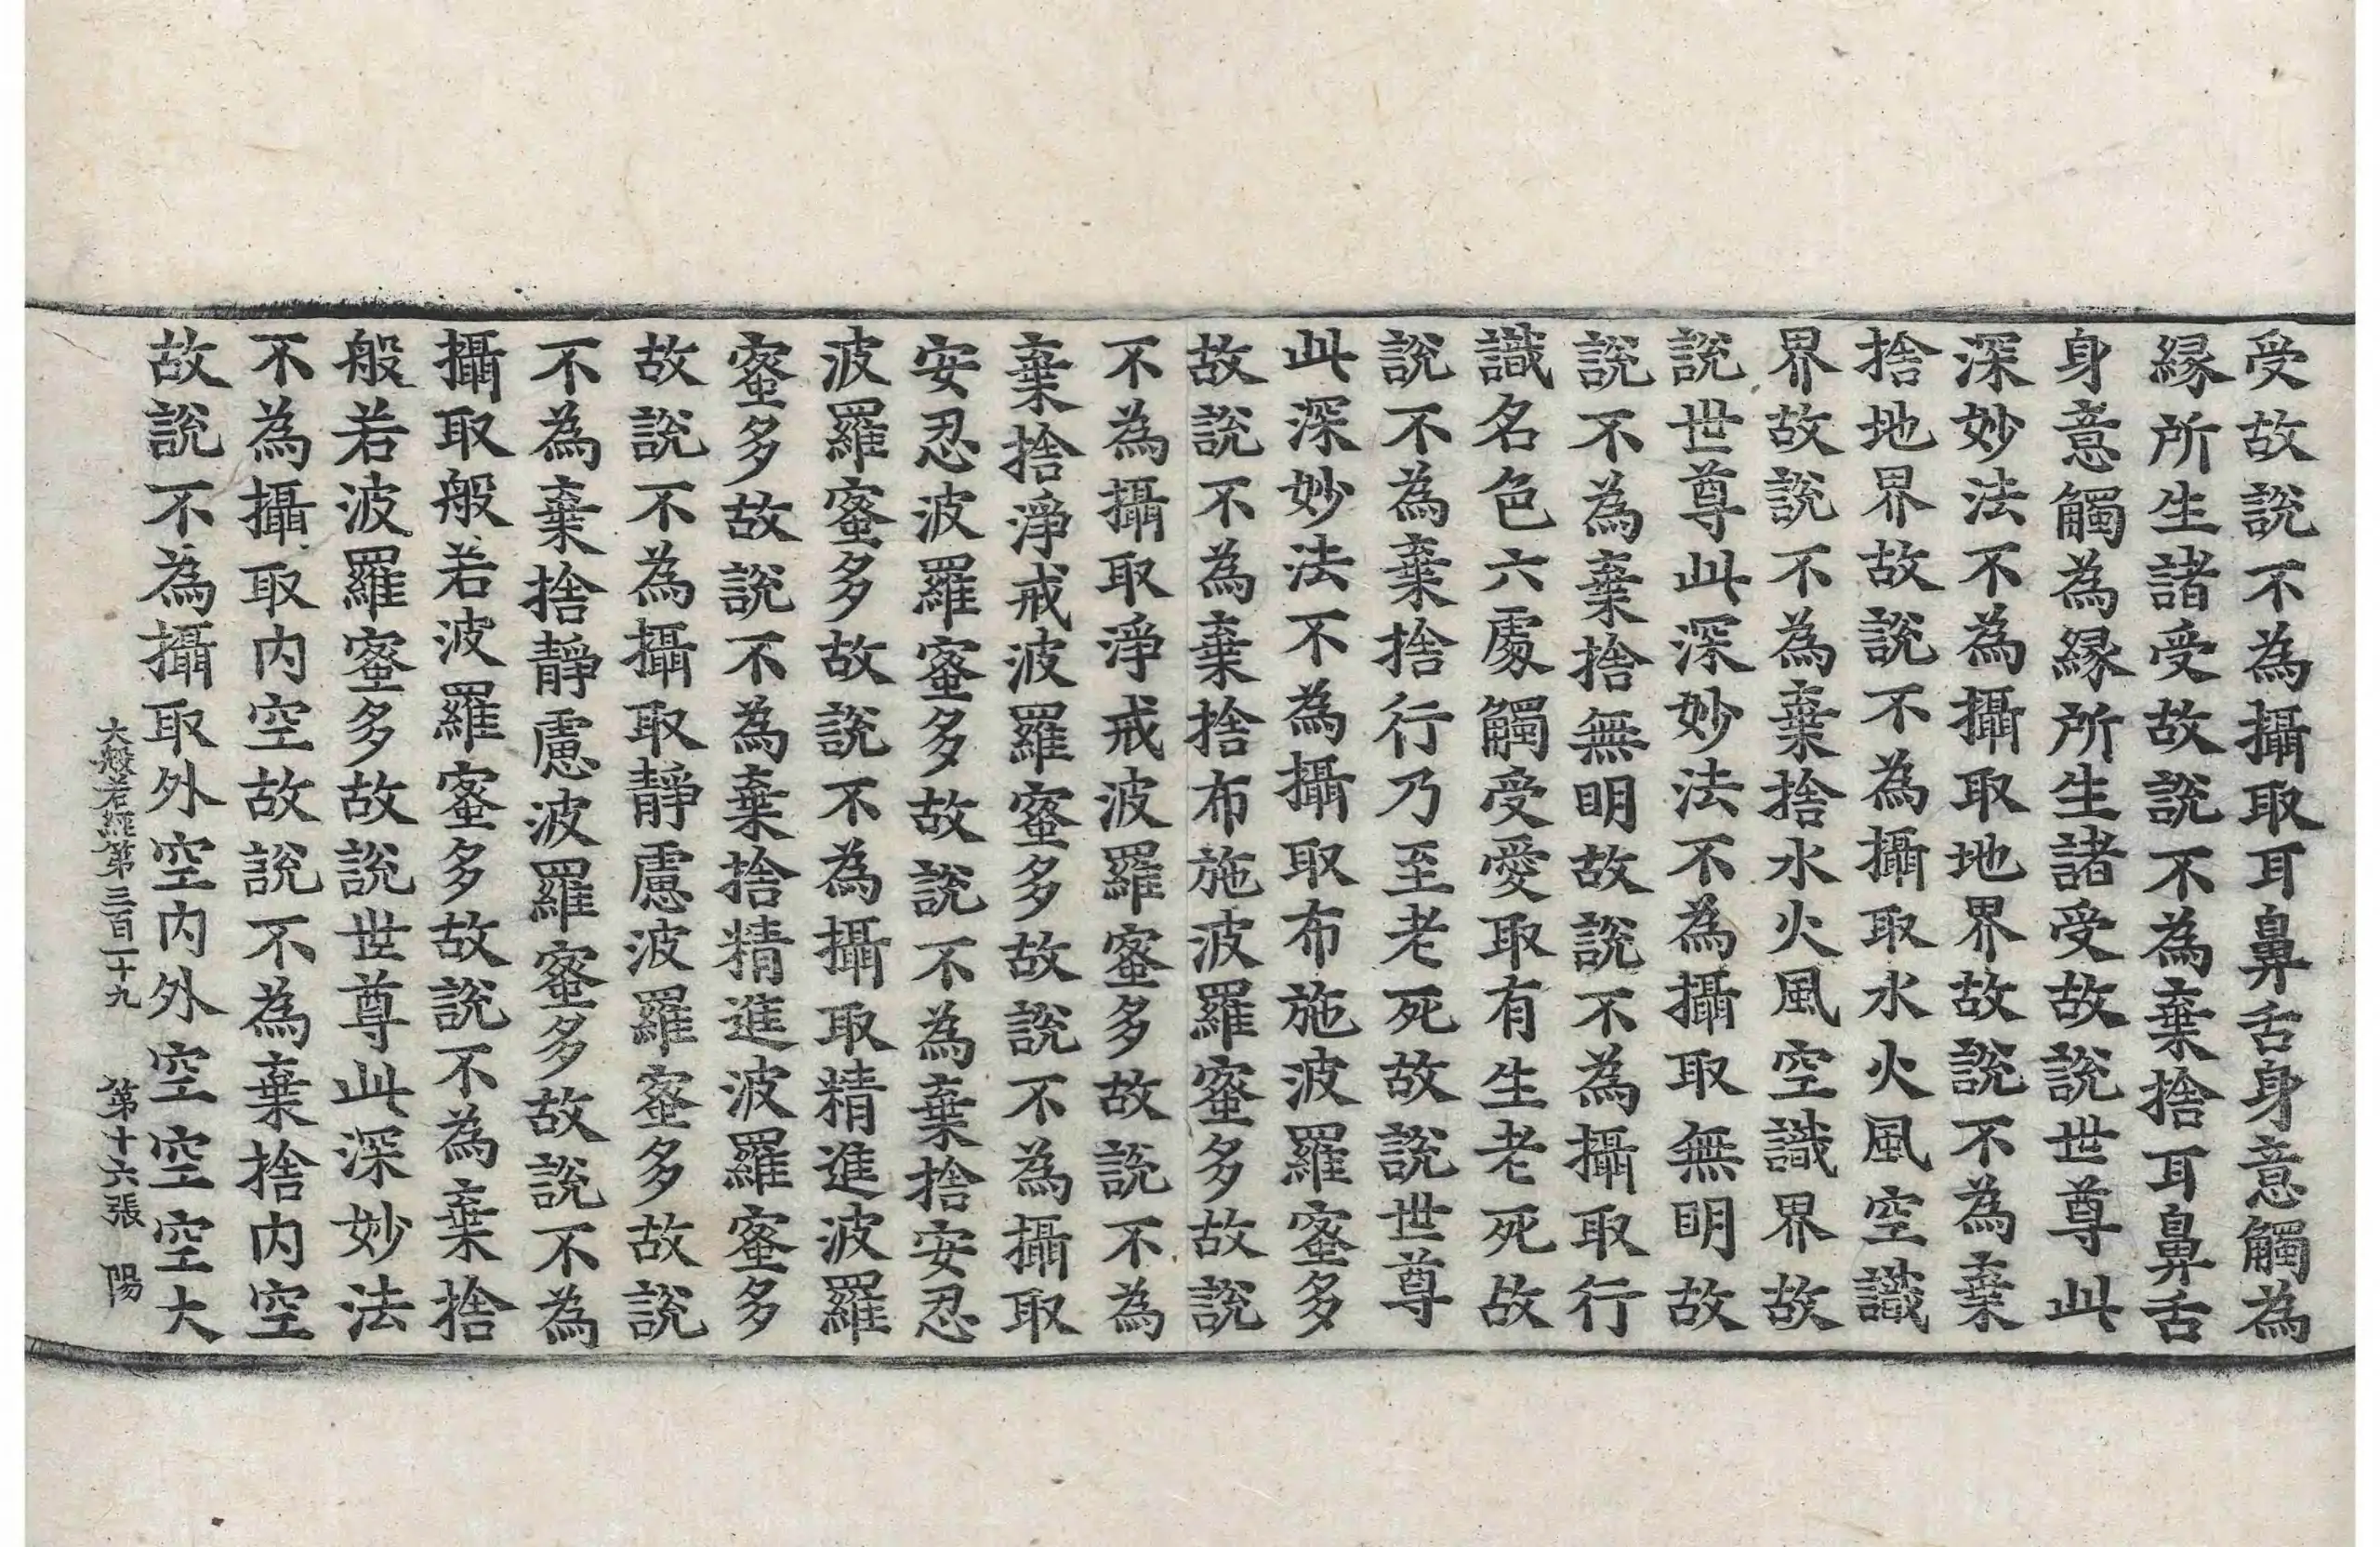 受故說不為攝取耳鼻舌身意觸為
縁所生諸受故說不為棄捨耳鼻舌
身意觸為縁所生諸受故說世尊此
深妙法不為攝取地界故說不為棄
捨地界故說不為攝取水火風空識
界故說不為棄捨水火風空識界故
說世尊此深妙法不為攝取無明故
說不為棄捨無明故說不為攝取行
識名色六處觸受愛取有生老死故
說不為棄捨行乃至老死故說世尊
此深妙法不為攝取布施波羅蜜多
故說不為棄捨布施波羅蜜多故說
不為攝取淨戒波羅蜜多故說不為
棄捨淨戒波羅蜜多故說不為攝取
安忍波羅蜜多故說不為棄捨安忍
波羅蜜多故說不為攝取精進波羅
蜜多故說不為棄捨精進波羅蜜多
故說不為攝取靜慮波羅蜜多故說
不為棄捨靜慮波羅蜜多故說不為
攝取般若波羅蜜多故說不為棄捨
般若波羅蜜多故說世尊此深妙法
不為攝取內空故說不為棄捨內空
故說不為攝取外空內外空空空大
大般若經第三百二十九 第十六張 陽